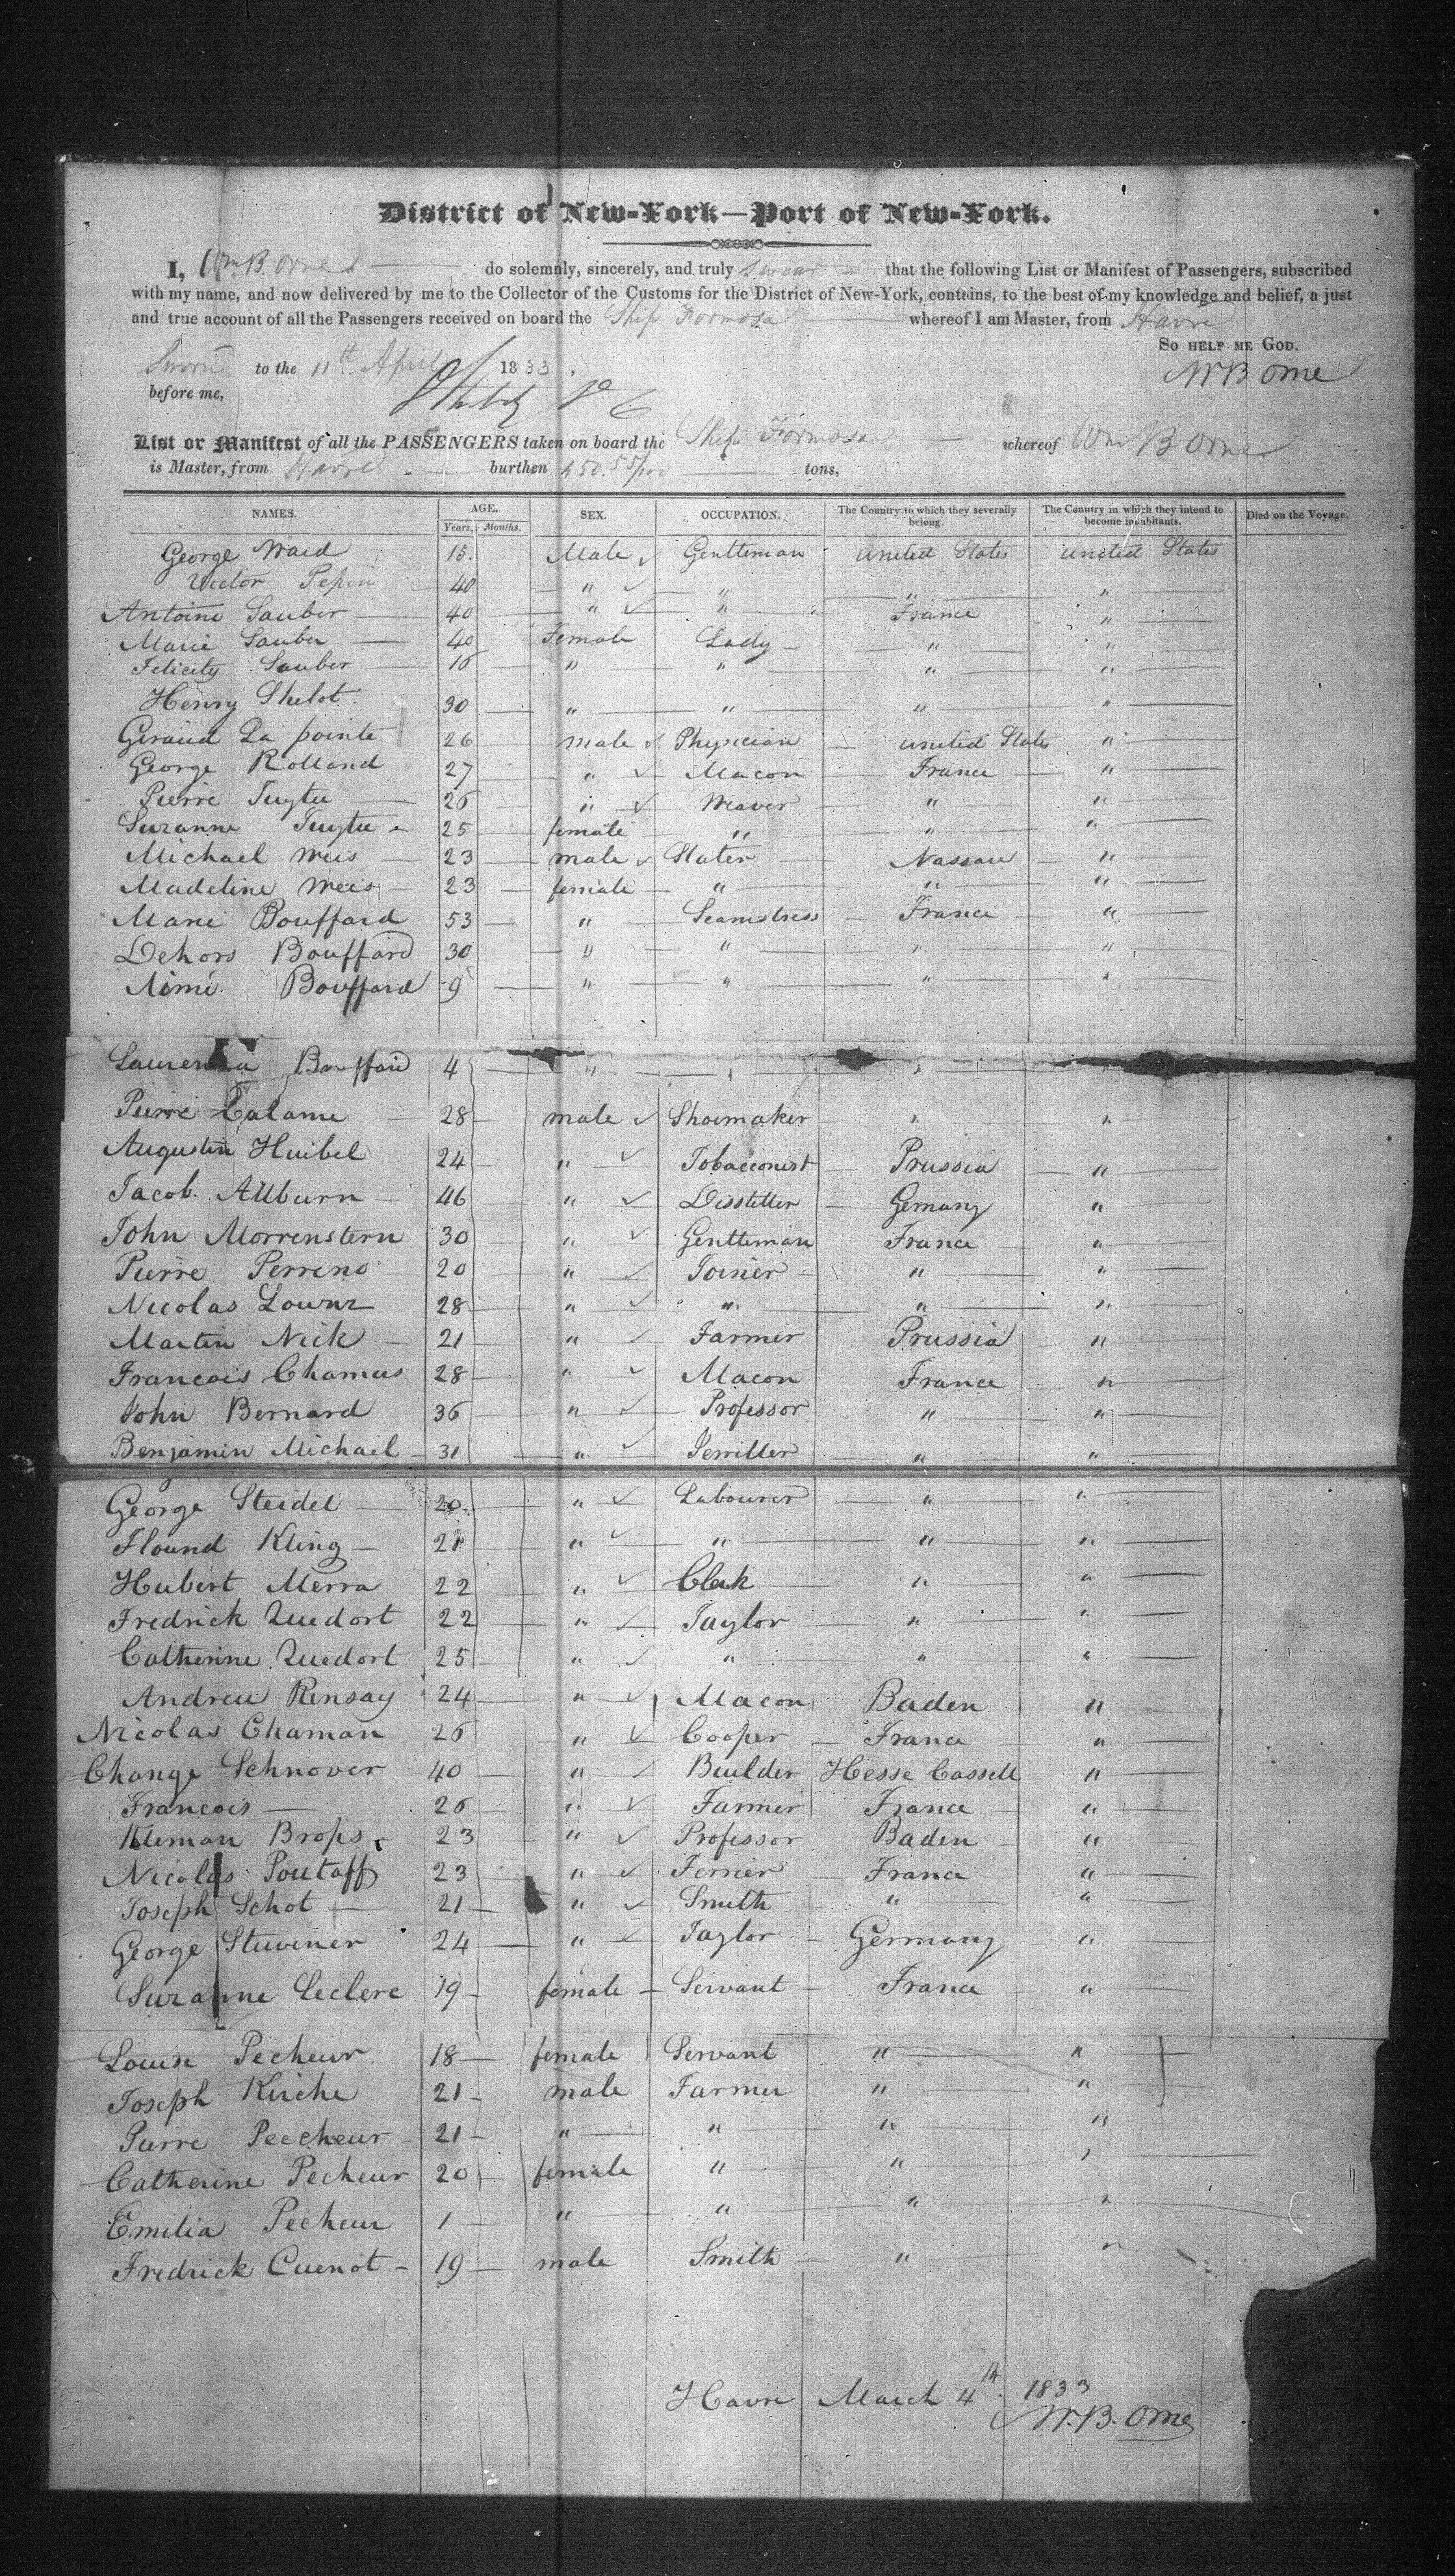 District of New-York—Port of New-York.
I, Wm B. Orne do solemnly, sincerely, and truly swear that the following List or Manifest of Passengers, subscribed
with my name, and now delivered by me to the Collector of the Customs for the District of New-York, contains, to the best of my knowledge and belief, a just
and true account of all the Passengers received on board the Ship Formosa whereof I am Master, from Havre
So help me God.
Sworn to the 11th April 1833
W B Orne
before me,
List or Manifest of all the PASSENGERS taken on board the Ship Formosa whereof Wm B Orne
is Master, from Havre burthen 450.55/100 tons,
NAMES. AGE. SEX. OCCUPATION. The Country to which they severally belong. The Country in which they intend to become inhabitants. Died on the Voyage.
Years. Months.
George Ward 15. Male Gentleman United States United States
Victor Pepin 40 " " " "
Antoine Sauber 40 " " France "
Marie Sauber 40 Female Lady " "
Felicity Sauber 16 " " " "
Henry Shelot. 30 " " " "
Giraud La pointe 26 male Physician United States "
George Rolland 27 " Macon France "
Pierre Tuytu 26 " Weaver " "
Suzanne Tuytu 25 female " " "
Michael Weis 23 male Slater Nassau "
Madeline Weis 23 female " " "
Marie Bouffard 53 " Seamstress France "
Dehors Bouffard 30 " " " "
Aimé Bouffard 9 " " " "
Bouffard 4 " " " "
Pierre Calame 28 male Shoemaker " "
Augustin Huibel 24 " Tobacconist Prussia "
Jacob. Allburn 46 " Disstiller Gemany "
John Morrenstern 30 " Gentleman France "
Pierre Perreno 20 " Joiner " "
Nicolas Lownz 28 " " " "
Martin Nick 21 " Farmer Prussia "
Francois Chamus 28 " Macon France "
John Bernard 36 " Professor " "
Benjamin Michael 31 " Jewiller " "
George Steidel 20 " Labourer " "
Flound Kling 21 " " " "
Hubert Merra 22 " Clerk " "
Fredrick Quedort 22 " Taylor " "
Catherine Quedort 25 " " " "
Andreu Rensay 24 " Macon Baden "
Nicolas Chaman 26 " Cooper France "
Change Schnover 40 " Builder Hesse Cassell "
Francois 26 " Farmer France "
Kleman Brops 23 " Professor Baden "
Nicolas Poutaff 23 " Ferrier France "
Joseph Schot 21 " Smith " "
George Stuviner 24 " Taylor Germany "
Suzanne Leclerc 19 female Servant France "
Louise Pecheur 18 female Servant " "
Joseph Kirche 21 male Farmer " "
Pierre Peecheur 21 " " " "
Catherine Pecheur 20 female " " "
Emilia Pecheur 1 " " " "
Fredrick Cuenot 19 male Smith " "
Havre March 4th 1833
W. B. Orne